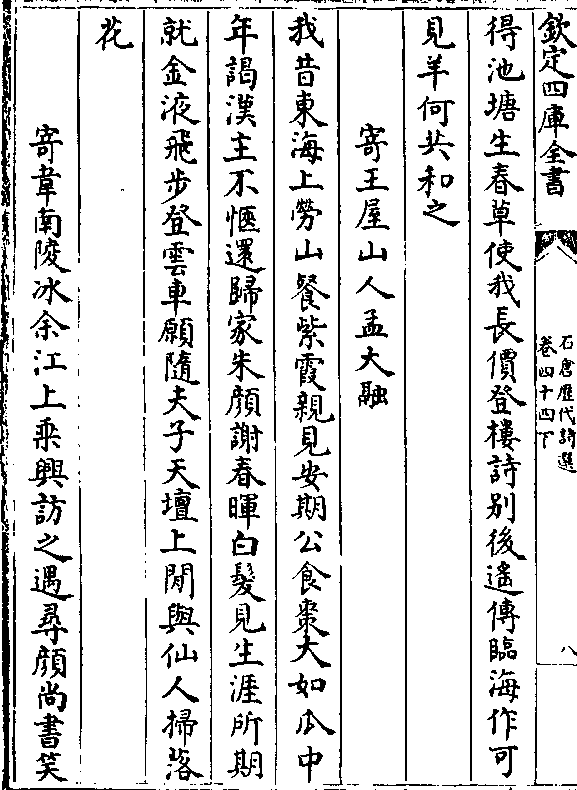 欽定四庫全書
石倉歷代詩選
卷四十四下
八
得池塘生春草使我長價登樓詩别後遥傳臨海作可
見羊何共和之
寄王屋山人孟大融
我昔東海上勞山餐紫霞親見安期公食棗大如瓜中
年謁漢主不愜還歸家朱顔謝春暉白髮見生涯所期
就金液飛步登雲車願隨夫子天壇上閒與仙人掃落
花
寄韋南陵冰余江上乘興訪之遇尋顔尚書笑